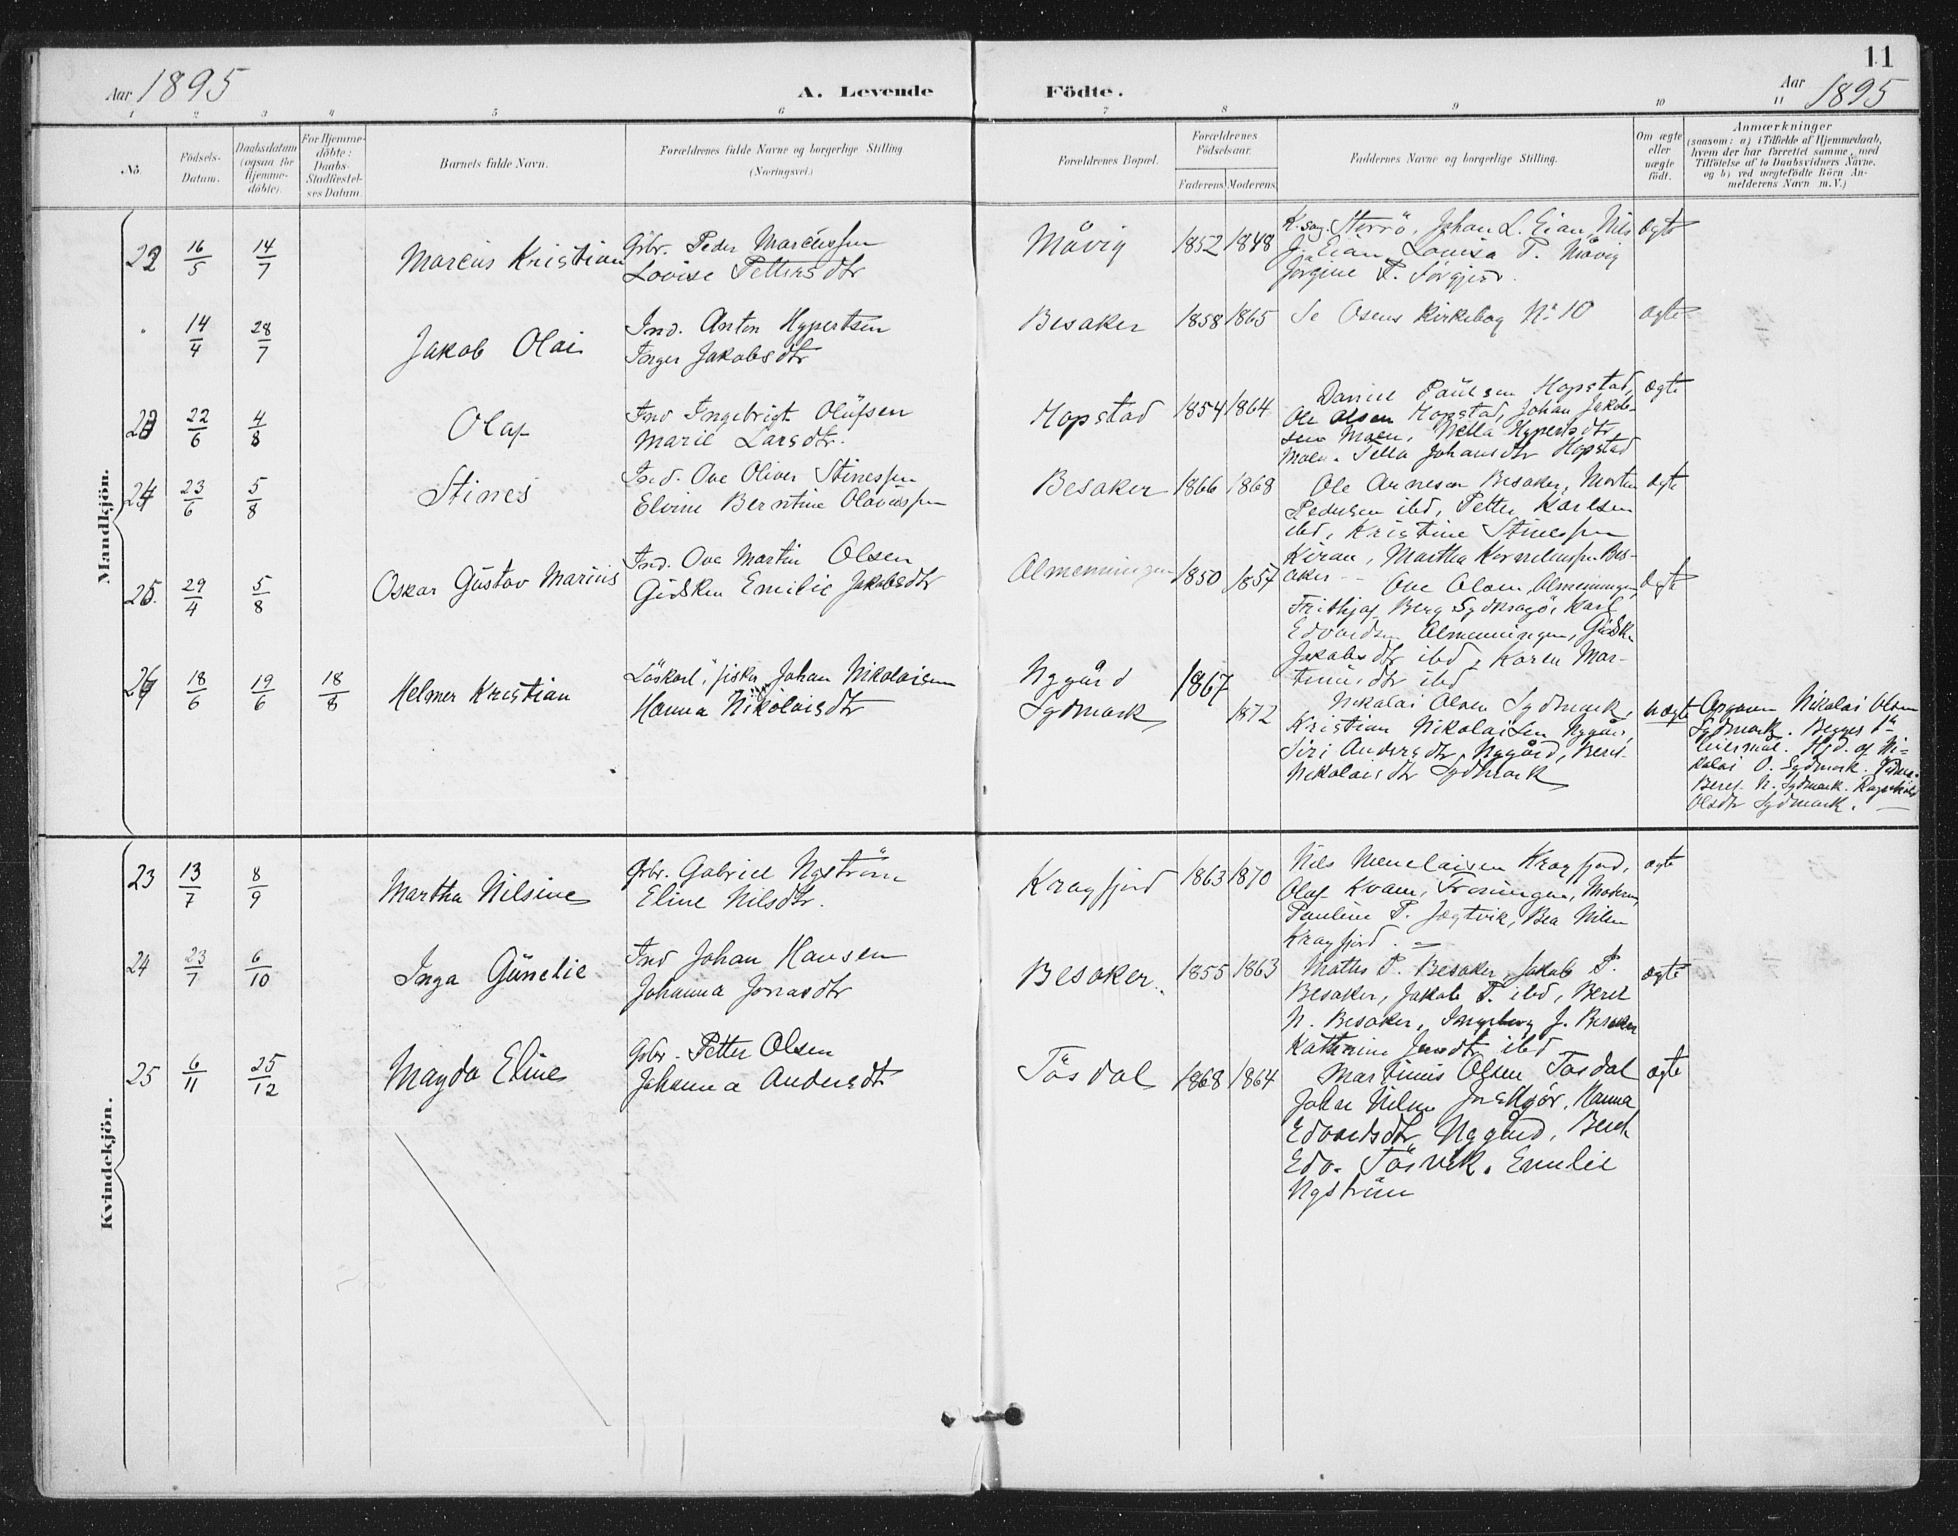 Aar 1895
A. Levende Födte.
11
Aar 1895
1 2 3 4 5 6 7 8 9 10 11
No.
Födsels-Datum.
Daabsdatum (ogsaa for Hjemme-döbte).
For Hjemme-döbte: Daabs Stadfæstel-ses Datum.
Barnets fulde Navn.
Forældrenes fulde Navne og borgerlige Stilling (Næringsvei.)
Forældrenes Bopæl.
Forældrenes Födselsaar.
Faderens Moderens
Faddernes Navne og borgerlige Stilling.
Om ægte eller uægte födt.
Anmærkninger
(saasom: a) i Tilfælde af Hjemmedaab, hvem der har forrettet samme, med Tilföielse af to Daabsvidners Navne, og b) ved uægtefödte Börn An-melderens Navn m.V.)
Mandkjön.
22 16/5 14/7 Marcus Kristian
Grbr. Peder Marcussen
Lovise Pettersdtr
Måvig 1852 1848
K.sang. Sterrö, Johan L. Eian, Nils
J. Eian, Lovisa P. Måvig
Jörgine P. Sörgjerd.
ægte
14/4 28/7 Jakob Olai
Ind. Anton Hypertsen
Inger Jakobsdtr
Besaker 1858 1865
Se Osens Kirkebog No 10
ægte
23 22/6 4/8 Olaf
Ind Ingebrigt Olufsen
Marie Larsdtr.
Hopstad 1854 1864
Daniel Paulsen Hopstad,
Ole Olsen Hopstad, Johan Jakob-
sen Moen, Nella Hypertsdtr
Moen. Jella Johansdtr Hopstad
ægte
24 23/6 5/8 Stines
Ind. Ove Oliver Stinessen
Elvine Berntine Olavessen
Besaker 1866 1868
Ole Arnesen Besaker, Morten
Pedersen ibd, Petter Karlsen
ibd, Kristine Stinessen
Kiran, Martha Korneliussen Bes-
aker
ægte
25. 29/4 5/8 Oskar Gustav Marius
Ind. Ove Martin Olsen
Gidsken Emilie Jakobsdtr
Almenningen 1850 1857
Ove Olsen, Almenningen,
Frithjof Berg Sydkragö, Karl
Edvardsen Almenningen, Gidsken
Jakobsdtr ibd, Karen Mar-
tinusdtr ibd
ægte
26 18/6 19/6 18/8 Helmer Kristian
Löskarl, fisker Johan Nikolaisen
Hanna Nikolaisdtr
Nygård 1867
Sydmark 1872
Nikolai Olsen Sydmark,
Kristian Nikolaisen Nygård,
Siri Andersdtr Nygård, Beret
Nikolaisdtr Sydmark
uægte
Opgaven Nikolai Olsen
Sydmark. Begges 1ste
leiermål. Hjd. af Ni-
kolai O. Sydmark.
Beret N. Sydmark. Ragnhild
Olsdtr Sydmark.
Kvindekjön.
23 13/7 8/9 Martha Nilsine
Grbr. Gabriel Nyström
Eline Nilsdtr.
Kragfjord 1863 1870
Nils Menelaisen Kragfjord,
Olaf Kvam, Froningen, Moderen,
Pauline P. Jægtvik, Bea Nilsen
Kragfjord.
ægte
24 23/7 6/10 Inga Gunelie
Ind Johan Hansen
Johanna Jonasdtr
Besaker. 1855 1863
Mathis P. Besaker, Jakob P.
Besaker, Jakob T. ibd, Beret
N. Besaker, Ingeborg J. Besaker
Kathrine Jensdtr ibd
ægte
25 6/11 25/12 Magda Eline
Grbr. Petter Olsen
Johanna Andersdtr
Tösdal 1868 1864
Martinus Olsen Tösdal
Johan Nilsen Hanna
Edvardsdtr, Nygård, Beret
Edv. Tösvik. Emilie
Nyström
ægte